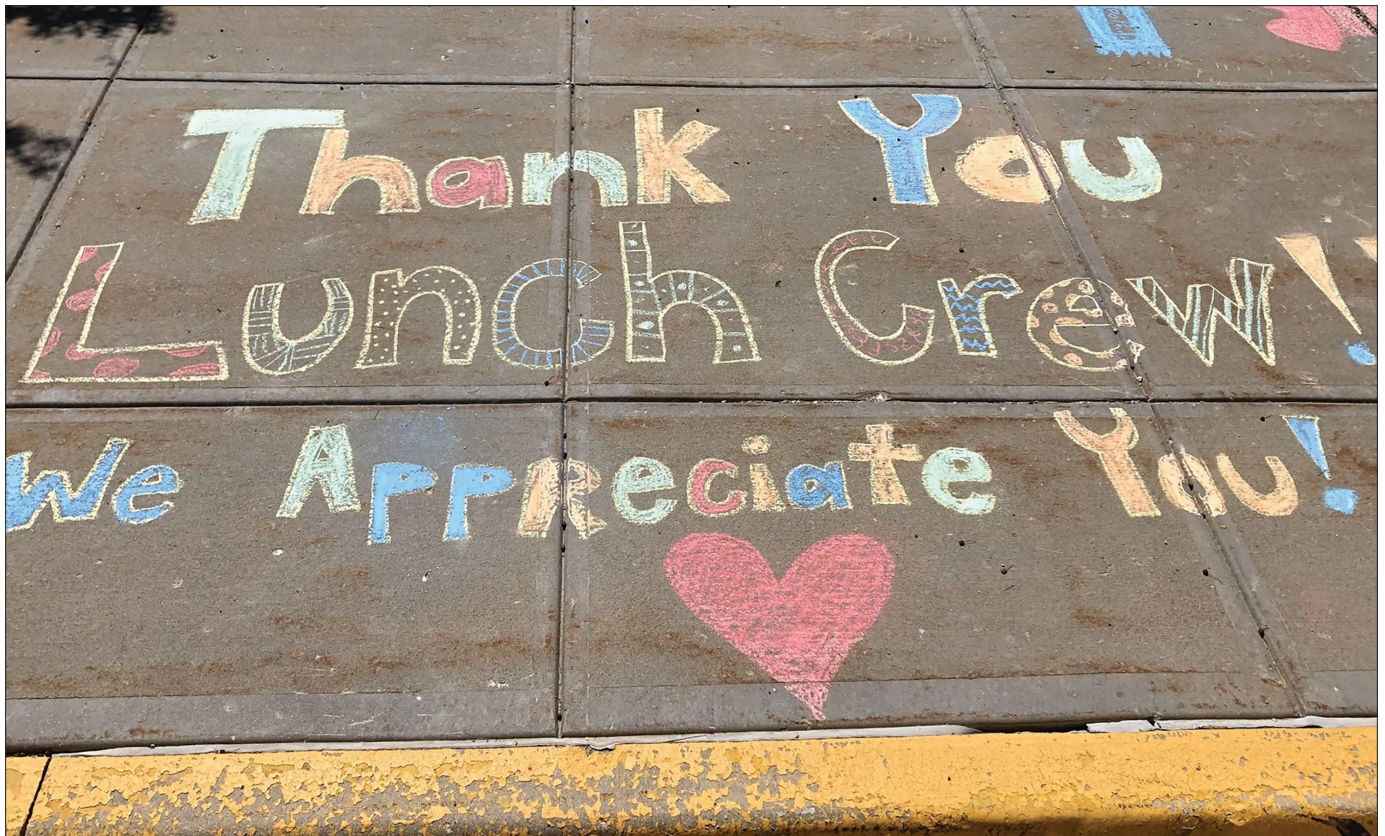 Thank You
Lunch Crew!!
We Appreciate You!